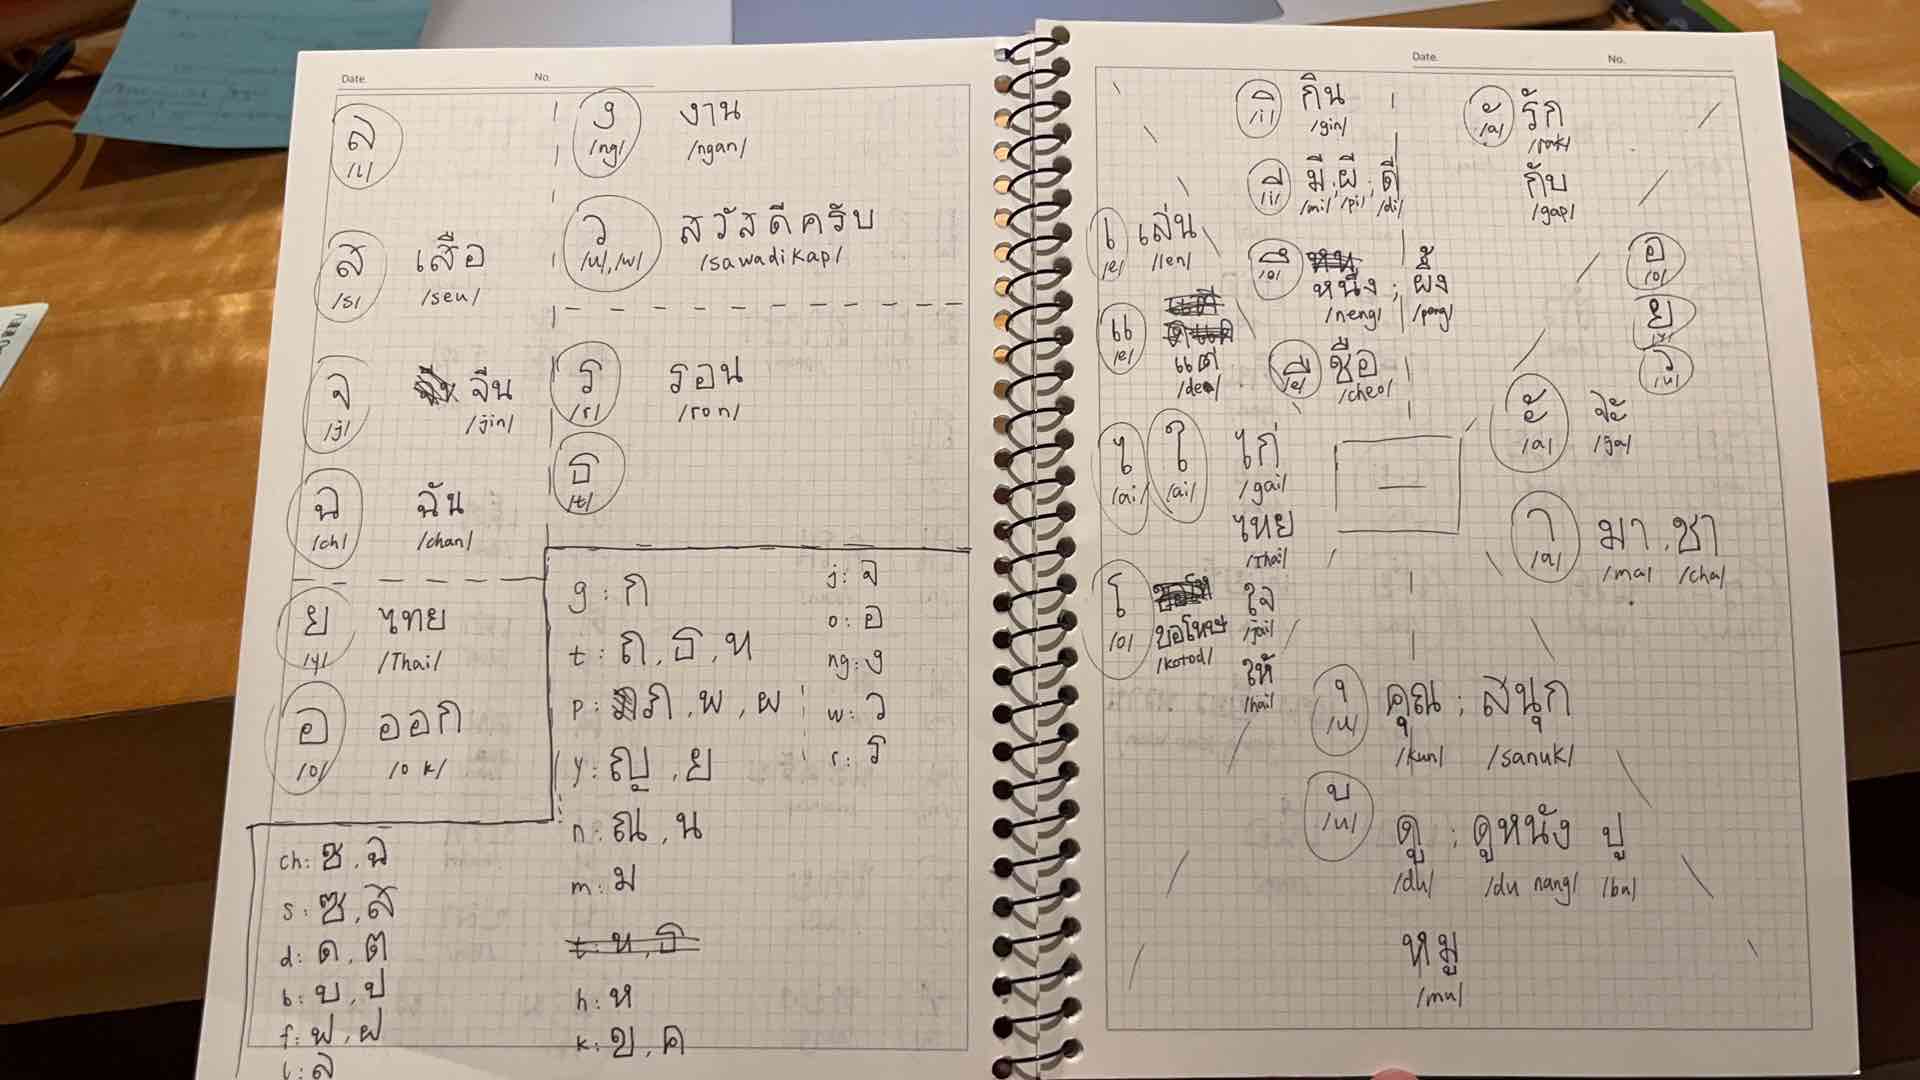 Date. No.
ล
/l/
ส เสือ
/s/ /seu/
จ จีน
/j/ /jin/
ฉ ฉัน
/ch/ /chan/
ย ไทย
/y/ /Thai/
อ ออก
/o/ /o k/
ง งาน
/ng/ /ngan/
ว สวัสดีครับ
/u/, /w/ /sawadikap/
ร รอน
/r/ /ron/
ธ
/t/
ch: ช, ฉ
s: ซ, ส
d: ด, ต
b: บ, ป
f: ฟ, ฝ
l: ล
g: ก
t: ถ, ธ, ท
p: ภ, พ, ผ
y: ญ, ย
n: ณ, น
m: ม
t: ท, ธ
h: ห
k: ข, ค
j: จ
o: อ
ng: ง
w: ว
r: ร
Date. No.
เ เล่น
/e/ /len/
แ แต่
/e/
ไ ใ ไก่
/ai/ /ai/ /gai/
ไทย
/Thai/
โ ขอโทษ ใจ
/o/ /kotod/ /jai/
ให้
/hai/
ิ กิน
/i/ /gin/
ี มี, ผี, ดี
/i/ /mi/ /pi/ /di/
ึ หนึ่ง ; ผึ้ง
/o/ /neng/ /peng/
ื ชือ
/e/ /cheo/
ั รัก
/a/ /rak/
กับ
/gap/
อ
/o/
ย
/y/
ว
/u/
ะ จ๊ะ
/a/ /ja/
า มา, ชา
/a/ /ma/ /cha/
ุ คุณ ; สนุก
/u/ /kun/ /sanuk/
ู ดู ; ดูหนัง ปู
/u/ /du/ /du nang/ /bu/
หมู
/mu/